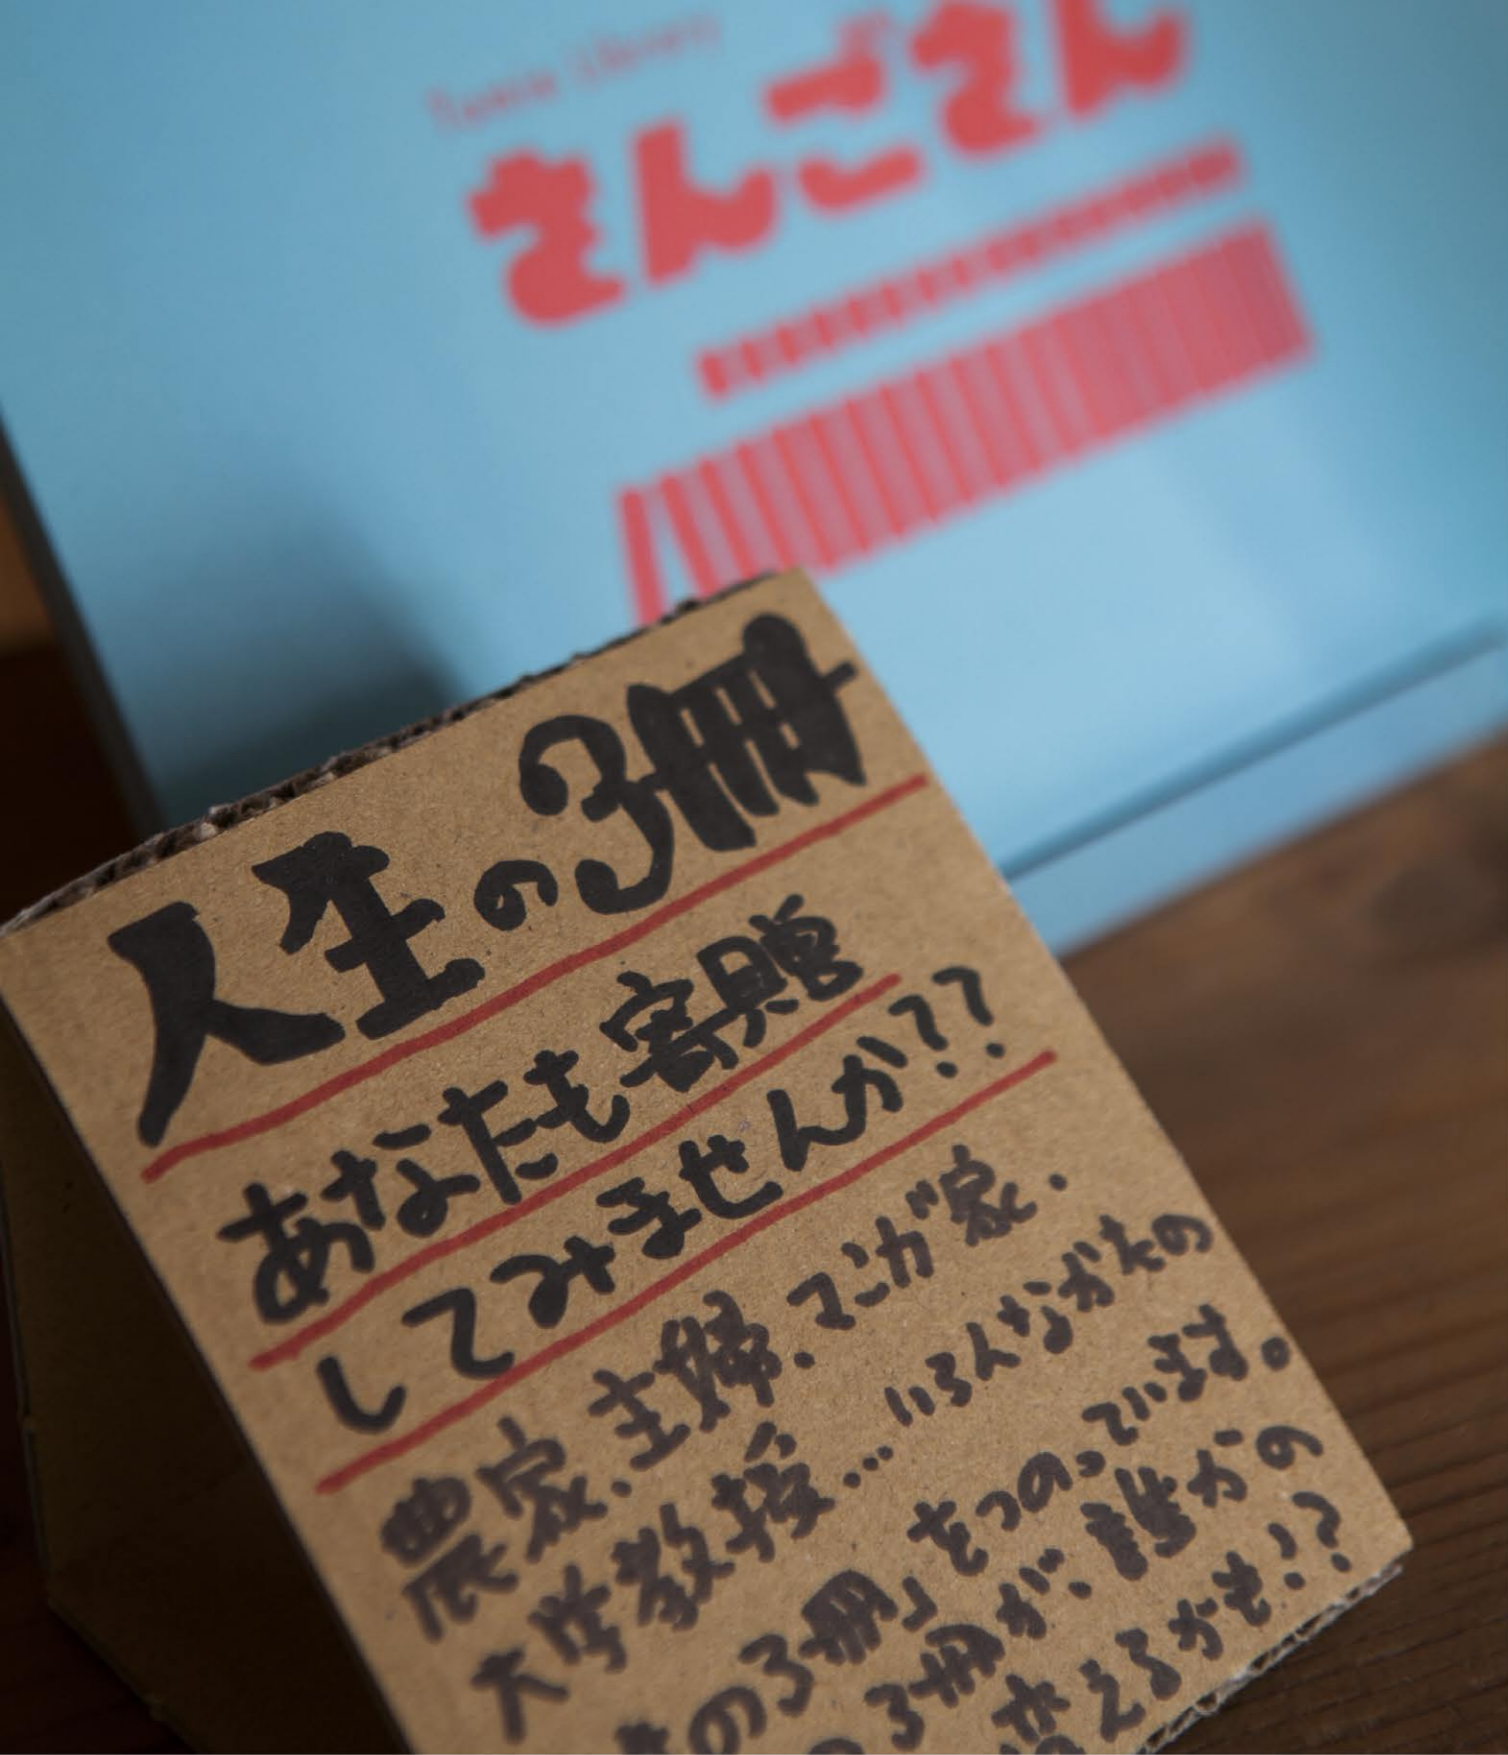 さんごさん
人生の3冊
あなたも寄贈
してみませんか??
農家、主婦、マンガ家、
大学教授…いろんなかたの
の3冊」をつのっています。
の3冊が、誰かの
変えるかも!?